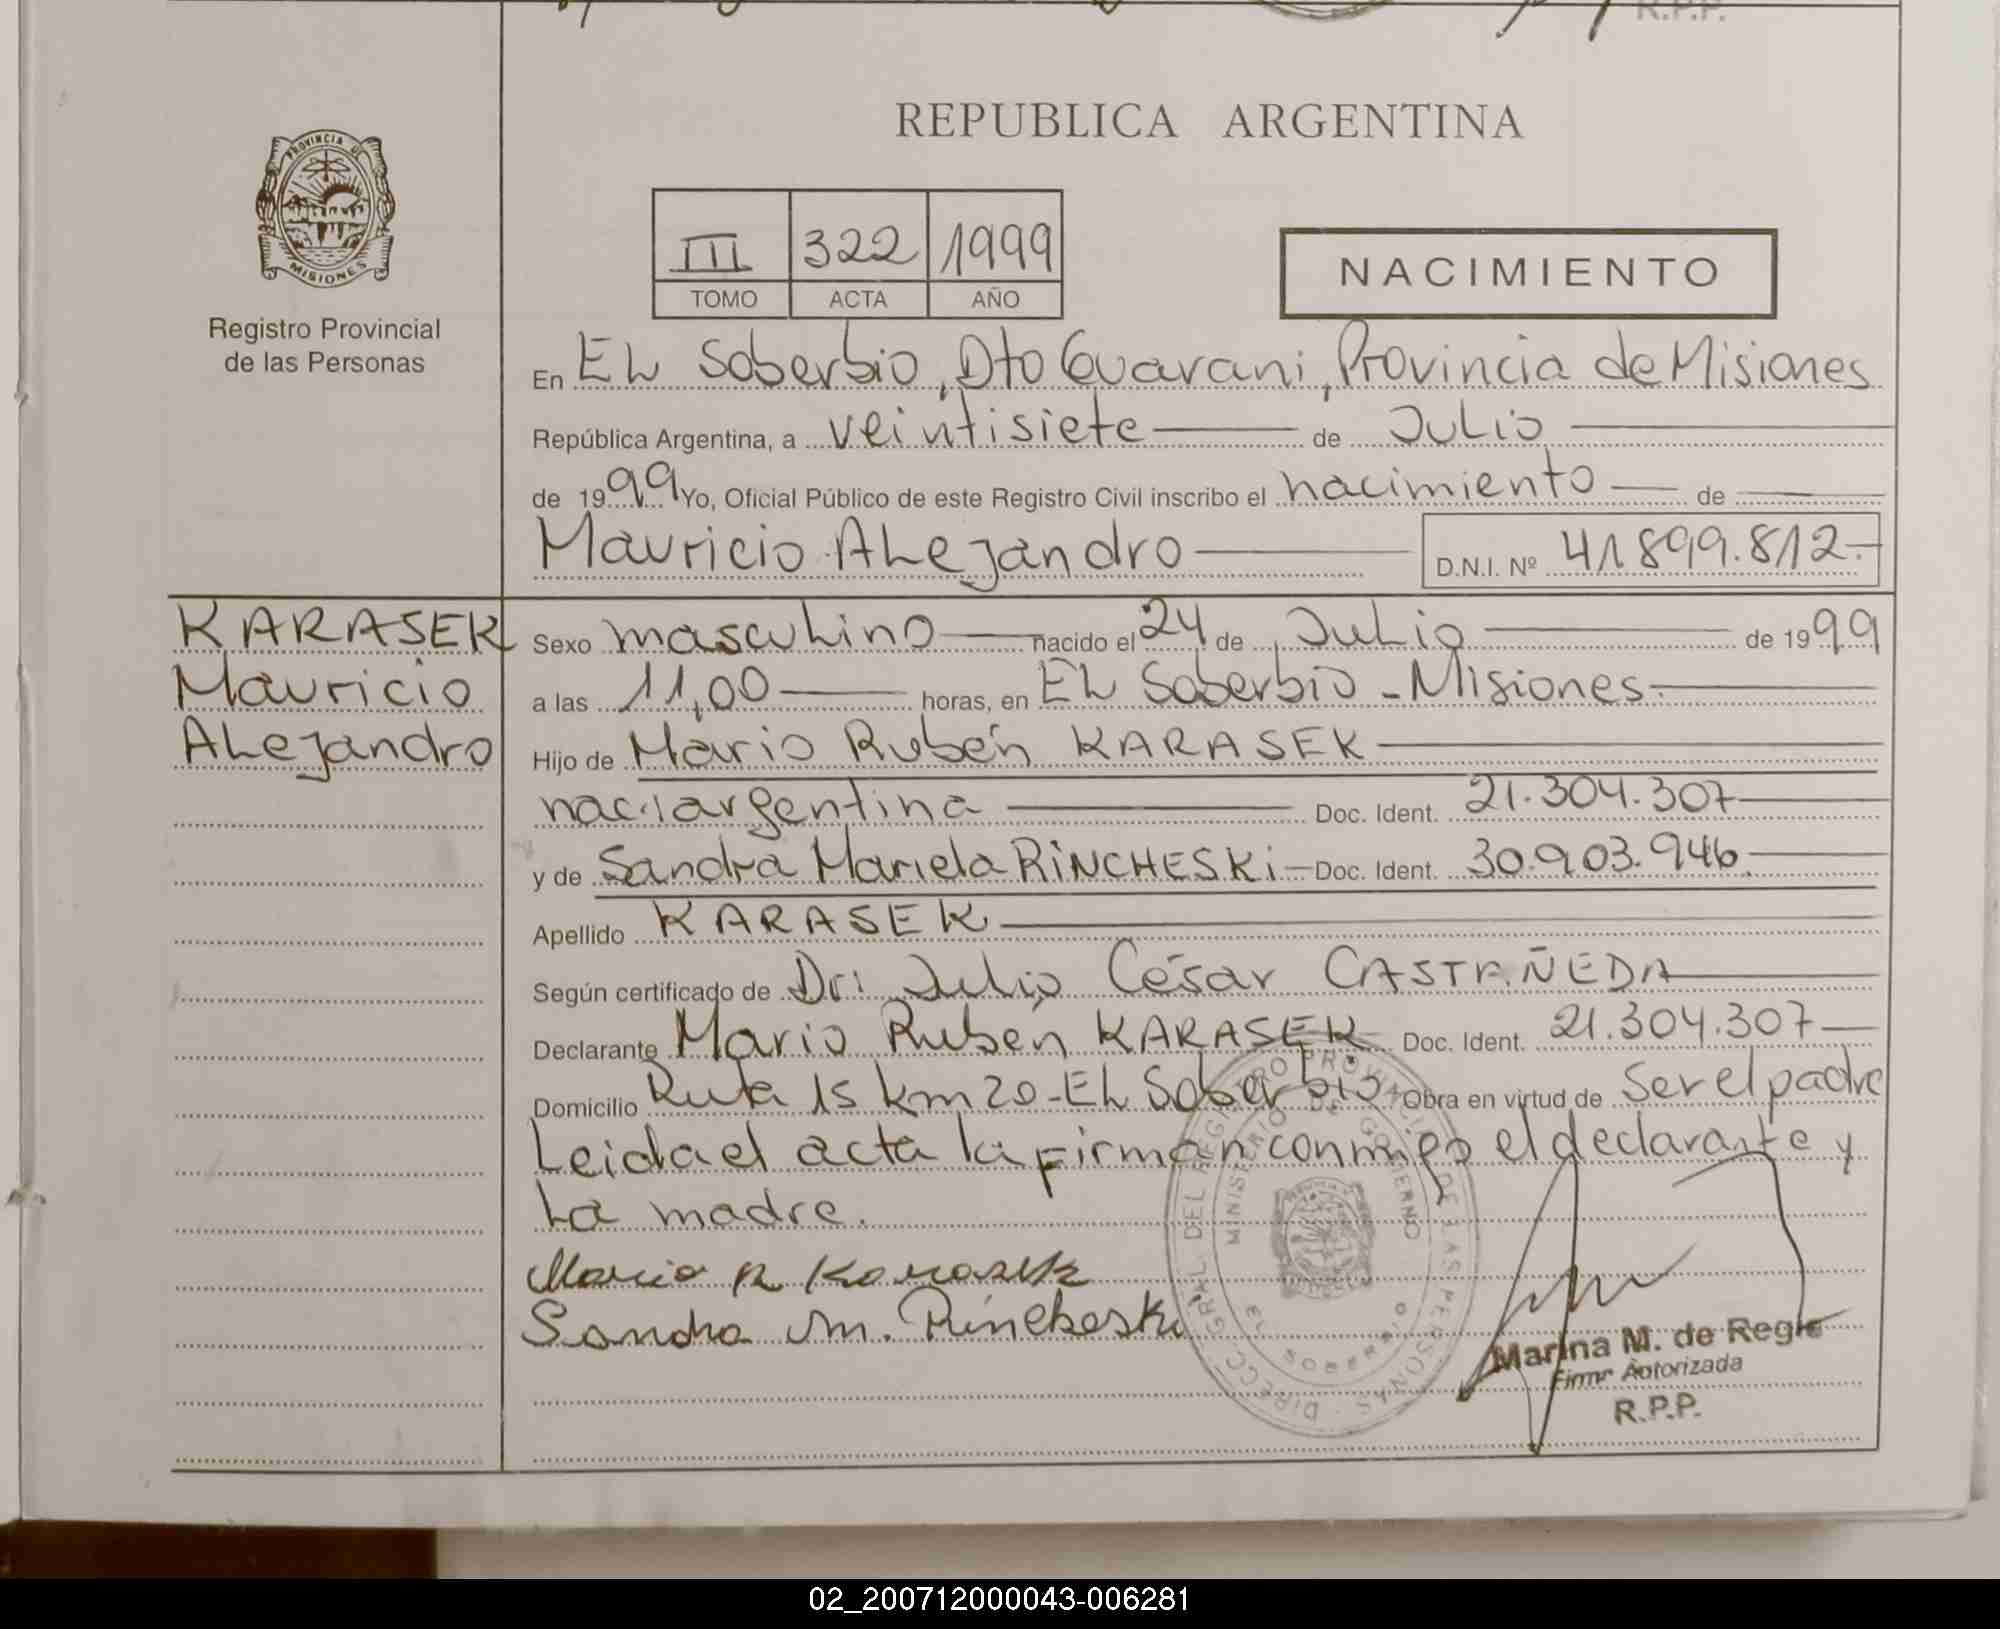 R.P.P.
REPUBLICA ARGENTINA
PROVINCIA DE
MISIONES
Registro Provincial
de las Personas
III 322 1999
TOMO ACTA AÑO
NACIMIENTO
En EL Soberbio, Dto Guarani, Provincia de Misiones
República Argentina, a veintisiete de Julio
de 1999 Yo, Oficial Público de este Registro Civil inscribo el nacimiento de
Mauricio Alejandro D.N.I. Nº 41.899.812.-
KARASEK
Mauricio
Alejandro
Sexo masculino nacido el 24 de Julio de 1999
a las 11,00 horas, en EL Soberbio - Misiones.
Hijo de Mario Rubén KARASEK
nac. argentina Doc. Ident. 21.304.307
y de Sandra Mariela RiNCHESKi Doc. Ident. 30.903.946.
Apellido KARASEK
Según certificado de Dr. Julio César CASTAÑEDA
Declarante Mario Ruben KARASEK Doc. Ident. 21.304.307
Domicilio Ruta 15 km 20 - EL Soberbio Obra en virtud de ser el padre
Leida el acta la firman conmigo el declarante y
la madre.
Mario R Karasek
Sandra M. Rincheski
DIRECC. GRAL. DEL REGISTRO PROVINCIAL DE LAS PERSONAS
MINISTERIO DE GOBIERNO
EL SOBERBIO
Marina M. de Regie
Firma Autorizada
R.P.P.
02_200712000043-006281